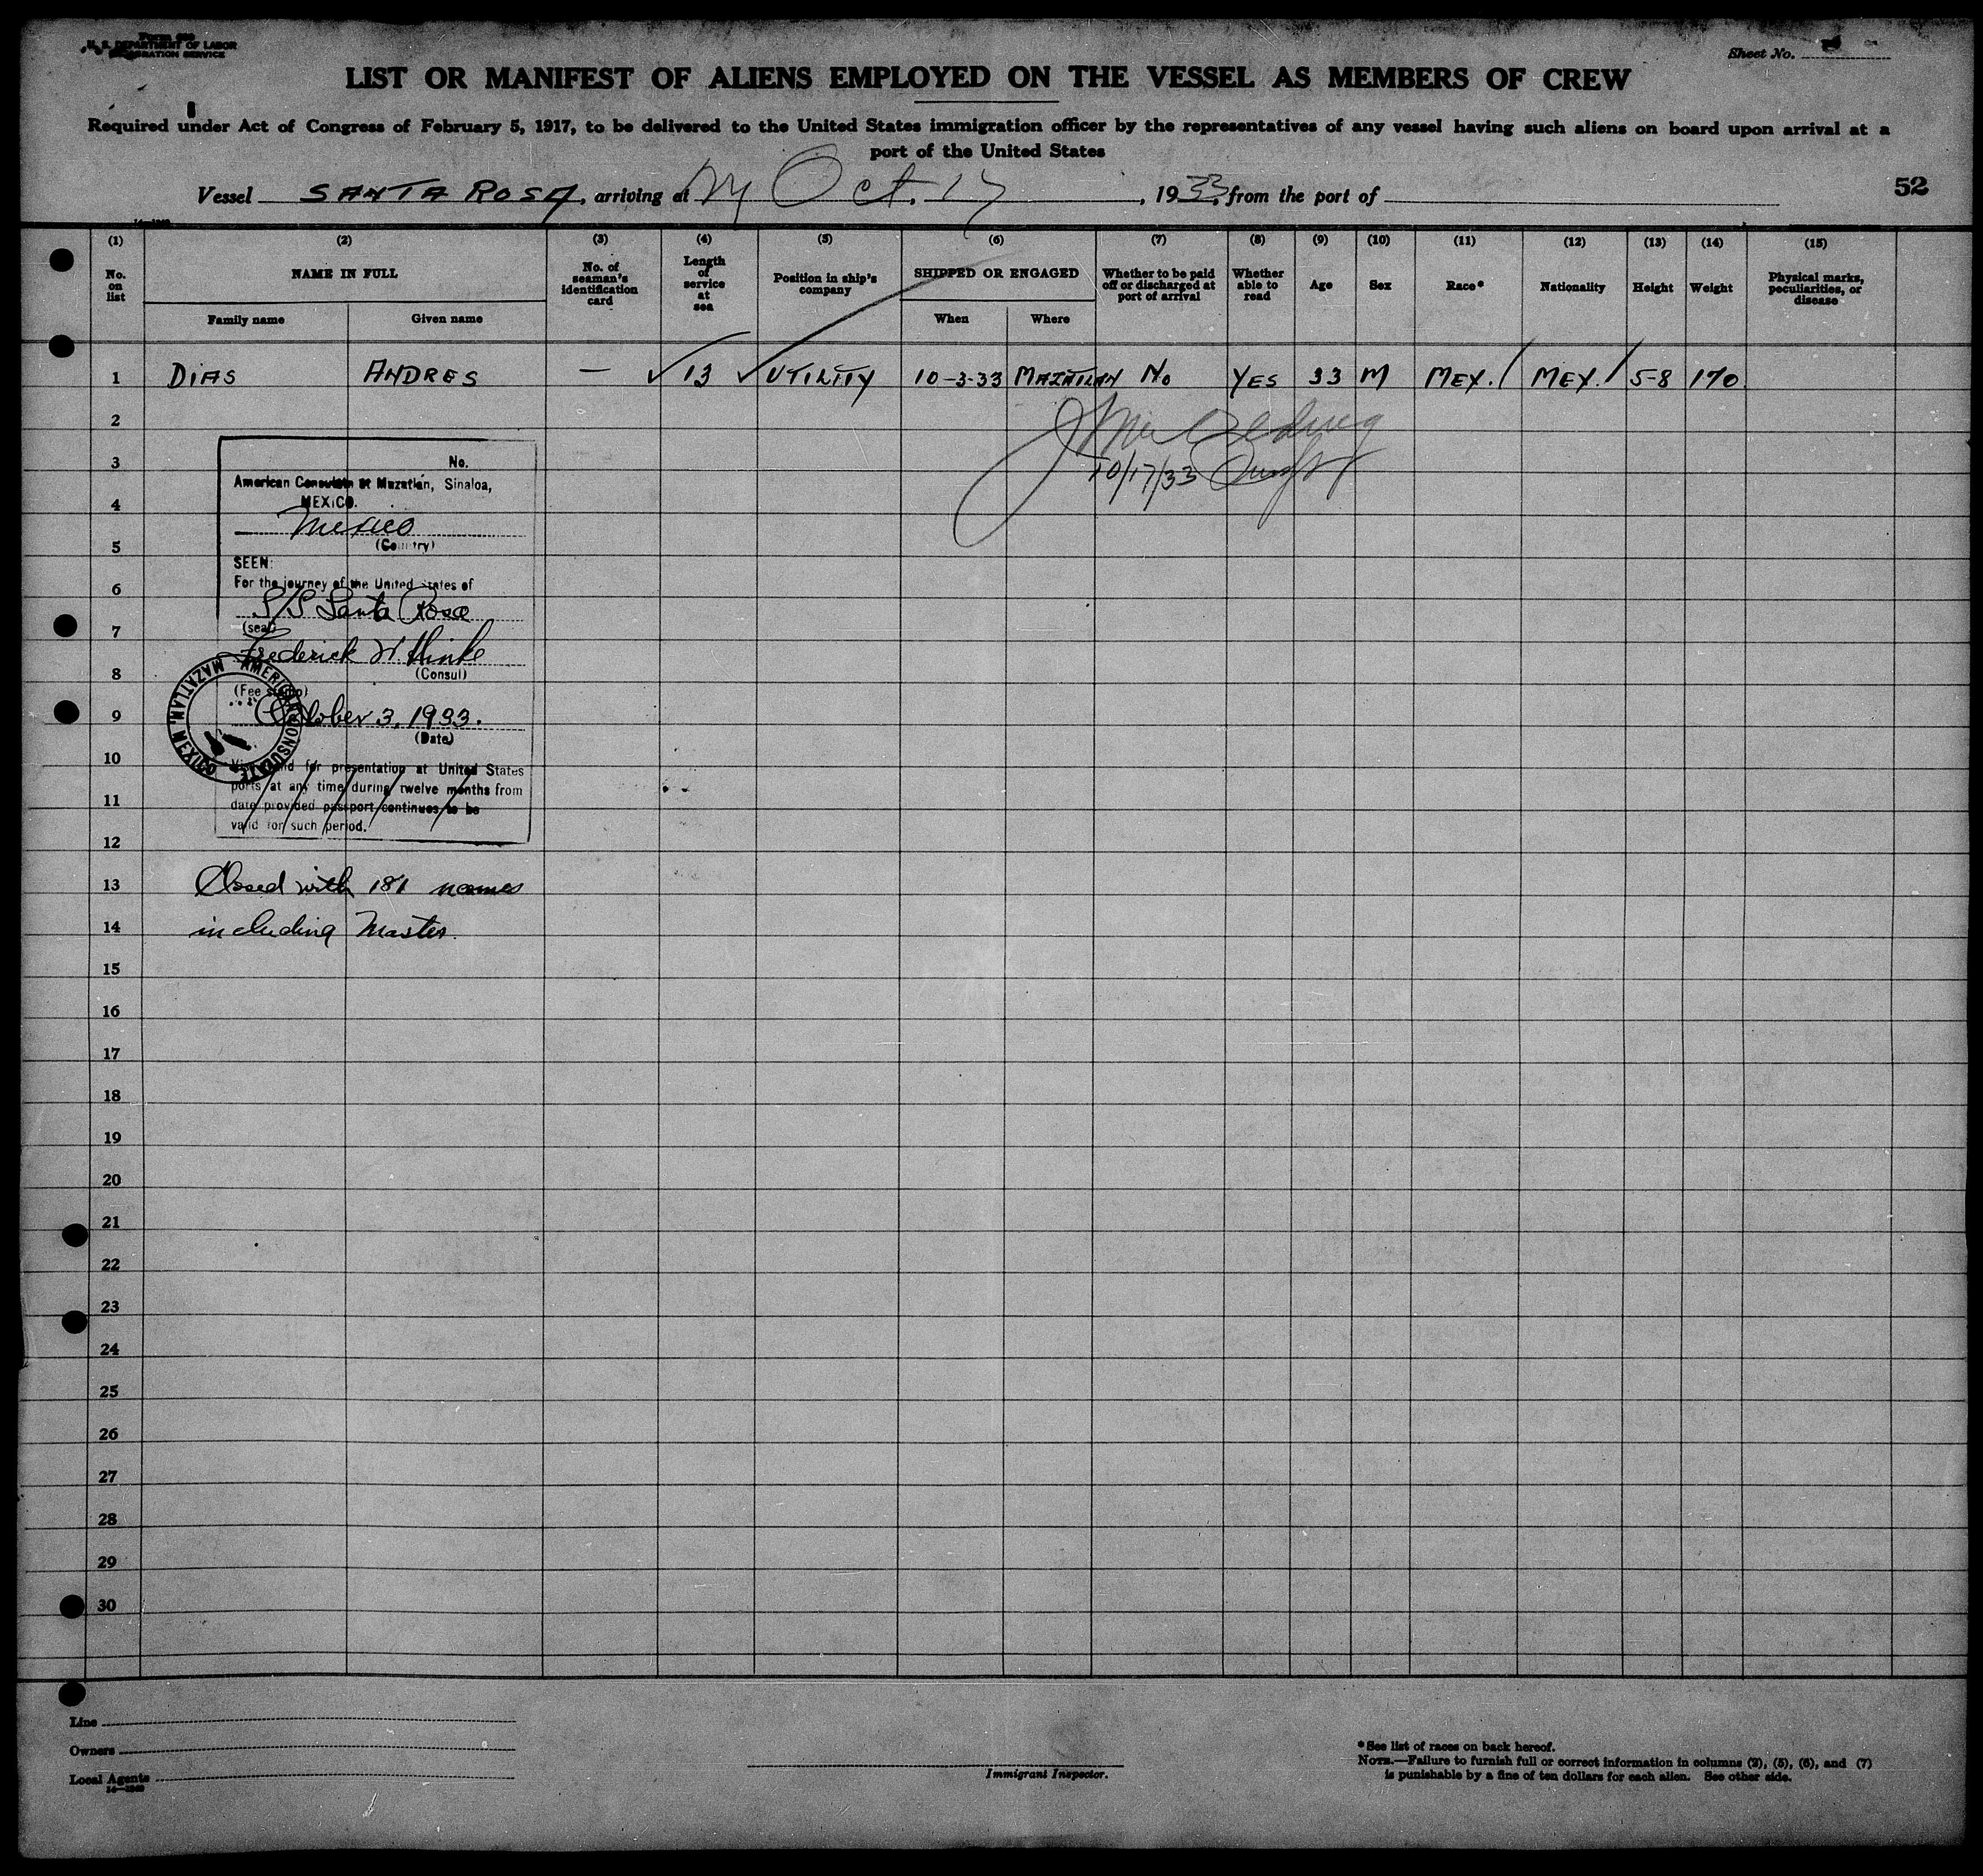 U. S. DEPARTMENT OF LABOR
IMMIGRATION SERVICE
Sheet No.
LIST OR MANIFEST OF ALIENS EMPLOYED ON THE VESSEL AS MEMBERS OF CREW
Required under Act of Congress of February 5, 1917, to be delivered to the United States immigration officer by the representatives of any vessel having such aliens on board upon arrival at a
port of the United States
Vessel SANTA ROSA, arriving at NY Oct. 17, 1933, from the port of
52
(1) (2) (3) (4) (5) (6) (7) (8) (9) (10) (11) (12) (13) (14) (15)
No. on list
NAME IN FULL
Family name
Given name
No. of seaman's identification card
Length of service at sea
Position in ship's company
SHIPPED OR ENGAGED
When
Where
Whether to be paid off or discharged at port of arrival
Whether able to read
Age
Sex
Race*
Nationality
Height
Weight
Physical marks, peculiarities, or disease
1 DIAS ANDRES — 13 UTILITY 10-3-33 MAZATLAN No YES 33 M MEX. MEX. 5-8 170
2
10/17/33
3
4
5
6
7
8
9
10
11
12
13
14
15
16
17
18
19
20
21
22
23
24
25
26
27
28
29
30
No.
American Consulate at Mazatlán, Sinaloa,
MEXICO.
Mexico
(Country)
SEEN:
For the journey of the United States of
S/S Santa Rosa
(seal)
Frederick W Hinke
(Consul)
(Fee stamp)
October 3, 1933.
(Date)
AMERICAN CONSULATE MAZATLAN, MEXICO
Visa valid for presentation at United States
ports at any time during twelve months from
date provided passport continues to be
valid for such period.
Closed with 181 names
including Master.
Line
Owners
Local Agents
Immigrant Inspector.
*See list of races on back hereof.
NOTE.—Failure to furnish full or correct information in columns (2), (5), (6), and (7)
is punishable by a fine of ten dollars for each alien. See other side.